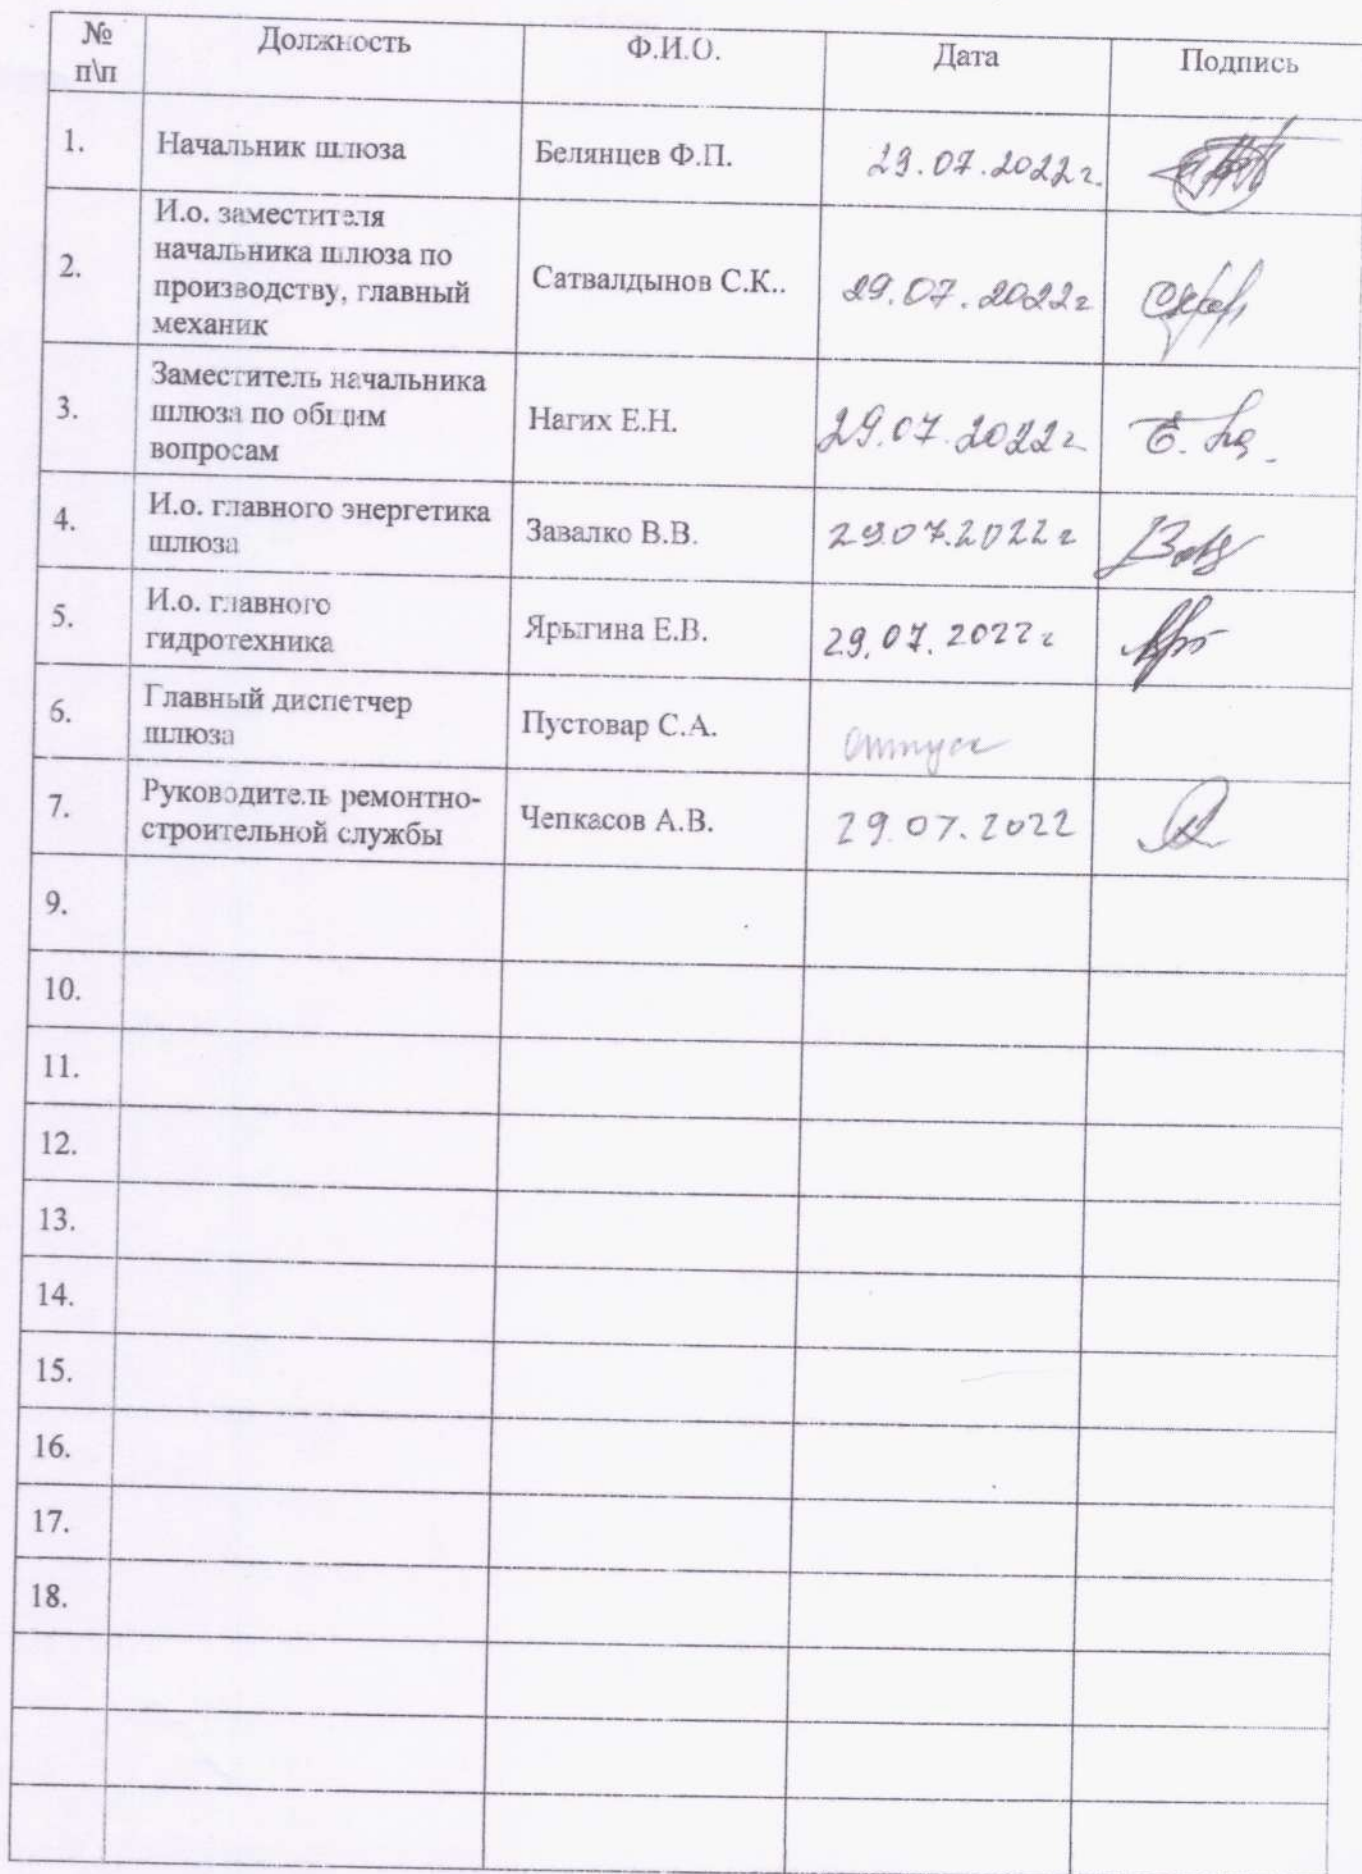 № п\п Должность Ф.И.О. Дата Подпись
1. Начальник шлюза Белянцев Ф.П. 29.07.2022г.
2. И.о. заместителя
начальника шлюза по
производству, главный
механик
Сатвалдынов С.К.. 29.07.2022г
3. Заместитель начальника
шлюза по общим
вопросам
Нагих Е.Н. 29.07.2022г
4. И.о. главного энергетика
шлюза
Завалко В.В. 29.07.2022г
5. И.о. главного
гидротехника
Ярыгина Е.В. 29.07.2022г
6. Главный диспетчер
шлюза
Пустовар С.А. отпуск
7. Руководитель ремонтно-
строительной службы
Чепкасов А.В. 29.07.2022
9.
10.
11.
12.
13.
14.
15.
16.
17.
18.